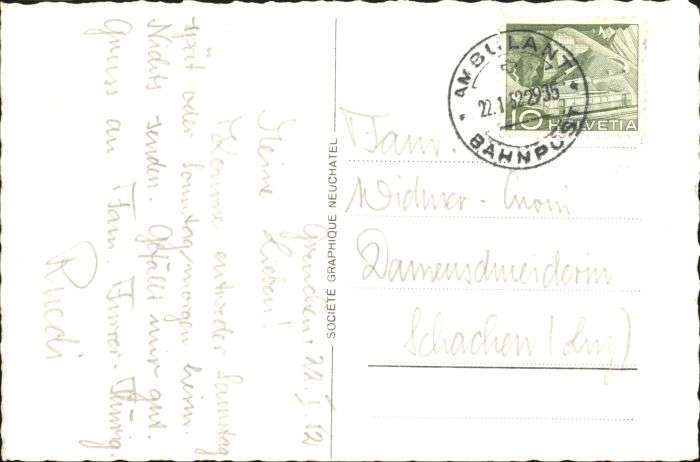 Grenchen, 22.I.52
Meine Lieben!
Komme entweder Samstag
spät oder Sonntagmorgen heim.
Nichts senden. Gefällt mir gut.
Gruss an Fam.
Ruedi
SOCIÉTÉ GRAPHIQUE NEUCHATEL
AMBULANT
22.1.52 2935
BAHNPOST
10 HELVETIA
Fam.
Widmer-
Damenschneiderin
Schachen (Luz)